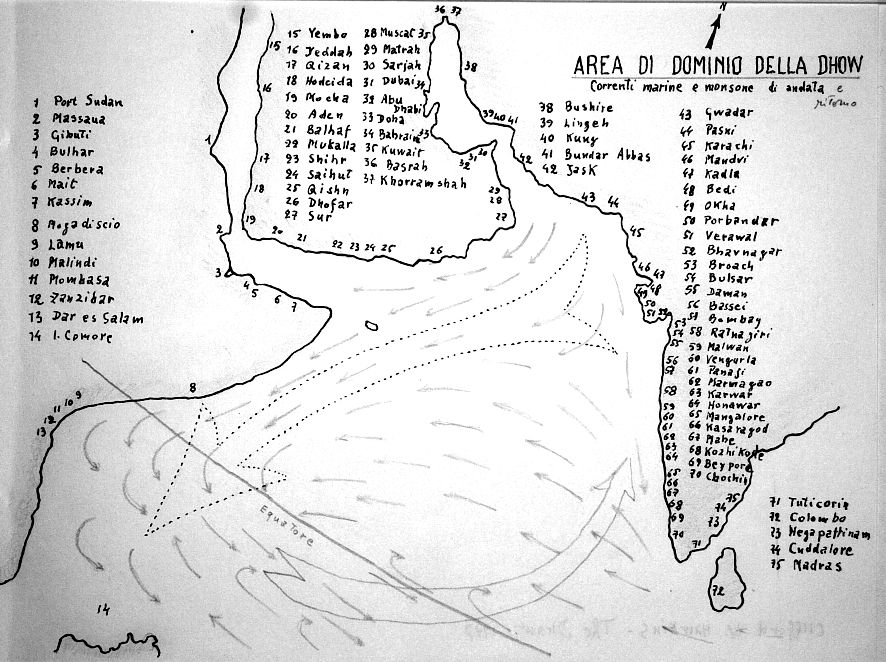 N
AREA DI DOMINIO DELLA DHOW
Correnti marine e monsone di andata e
ritorno
1 Port Sudan
2 Massaua
3 Gibuti
4 Bulhar
5 Berbera
6 Mait
7 Kassim
8 Mogadiscio
9 Lamu
10 Malindi
11 Mombasa
12 Zanzibar
13 Dar es Salam
14 I. Comore
15 Yembo
16 Jeddah
17 Qizan
18 Hodeida
19 Mocka
20 Aden
21 Balhaf
22 Mukalla
23 Shihr
24 Saihut
25 Qishn
26 Dhofar
27 Sur
28 Muscat
29 Matrah
30 Sarjah
31 Dubai
32 Abu
Dhabi
33 Doha
34 Bahrain
35 Kuwait
36 Basrah
37 Khorramshah
38 Bushire
39 Lingeh
40 Kung
41 Bundar Abbas
42 Jask
43 Gwadar
44 Pasni
45 Karachi
46 Mandvi
47 Kadla
48 Bedi
49 Okha
50 Porbandar
51 Verawal
52 Bhavnagar
53 Broach
54 Bulsar
55 Daman
56 Bassei
57 Bombay
58 Ratnagiri
59 Malwan
60 Vengurla
61 Panaji
62 Marmagao
63 Karwar
64 Honawar
65 Mangalore
66 Kasaragod
67 Mahe
68 Kozhikode
69 Beypore
70 Chochin
71 Tuticorin
72 Colombo
73 Negapattinam
74 Cuddalore
75 Madras
Equatore